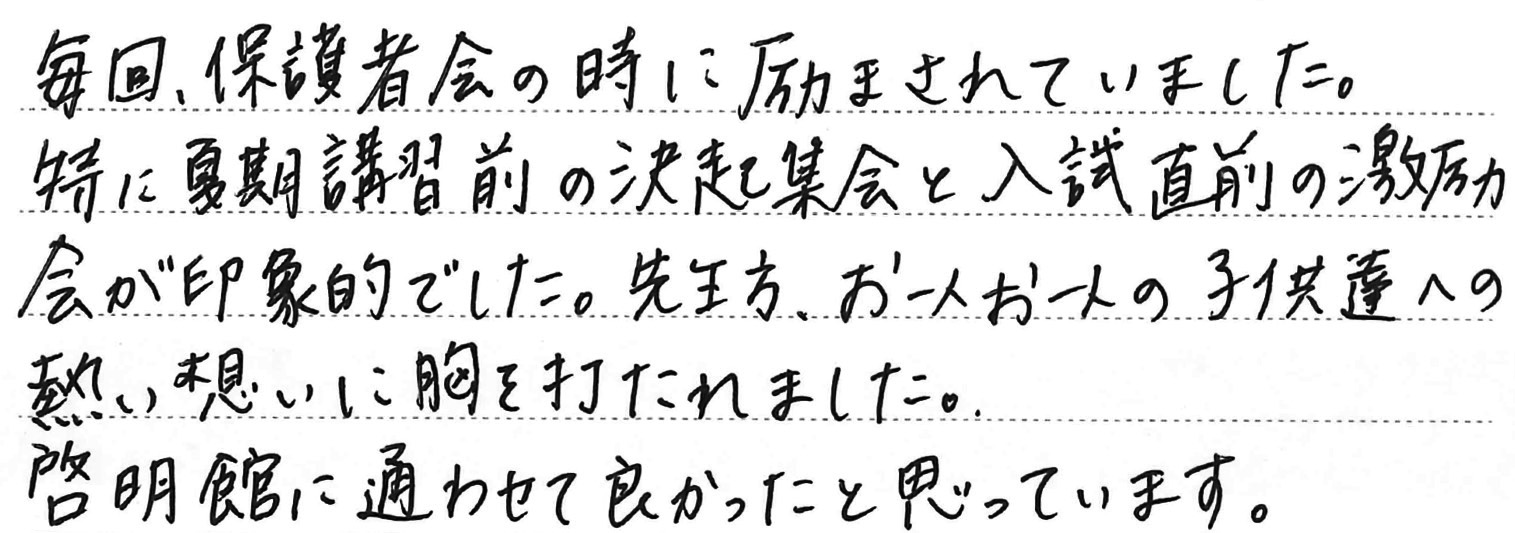 毎回、保護者会の時に励まされていました。
特に夏期講習前の決起集会と入試直前の激励
会が印象的でした。先生方、お一人お一人の子供達への
熱い想いに胸を打たれました。
啓明館に通わせて良かったと思っています。